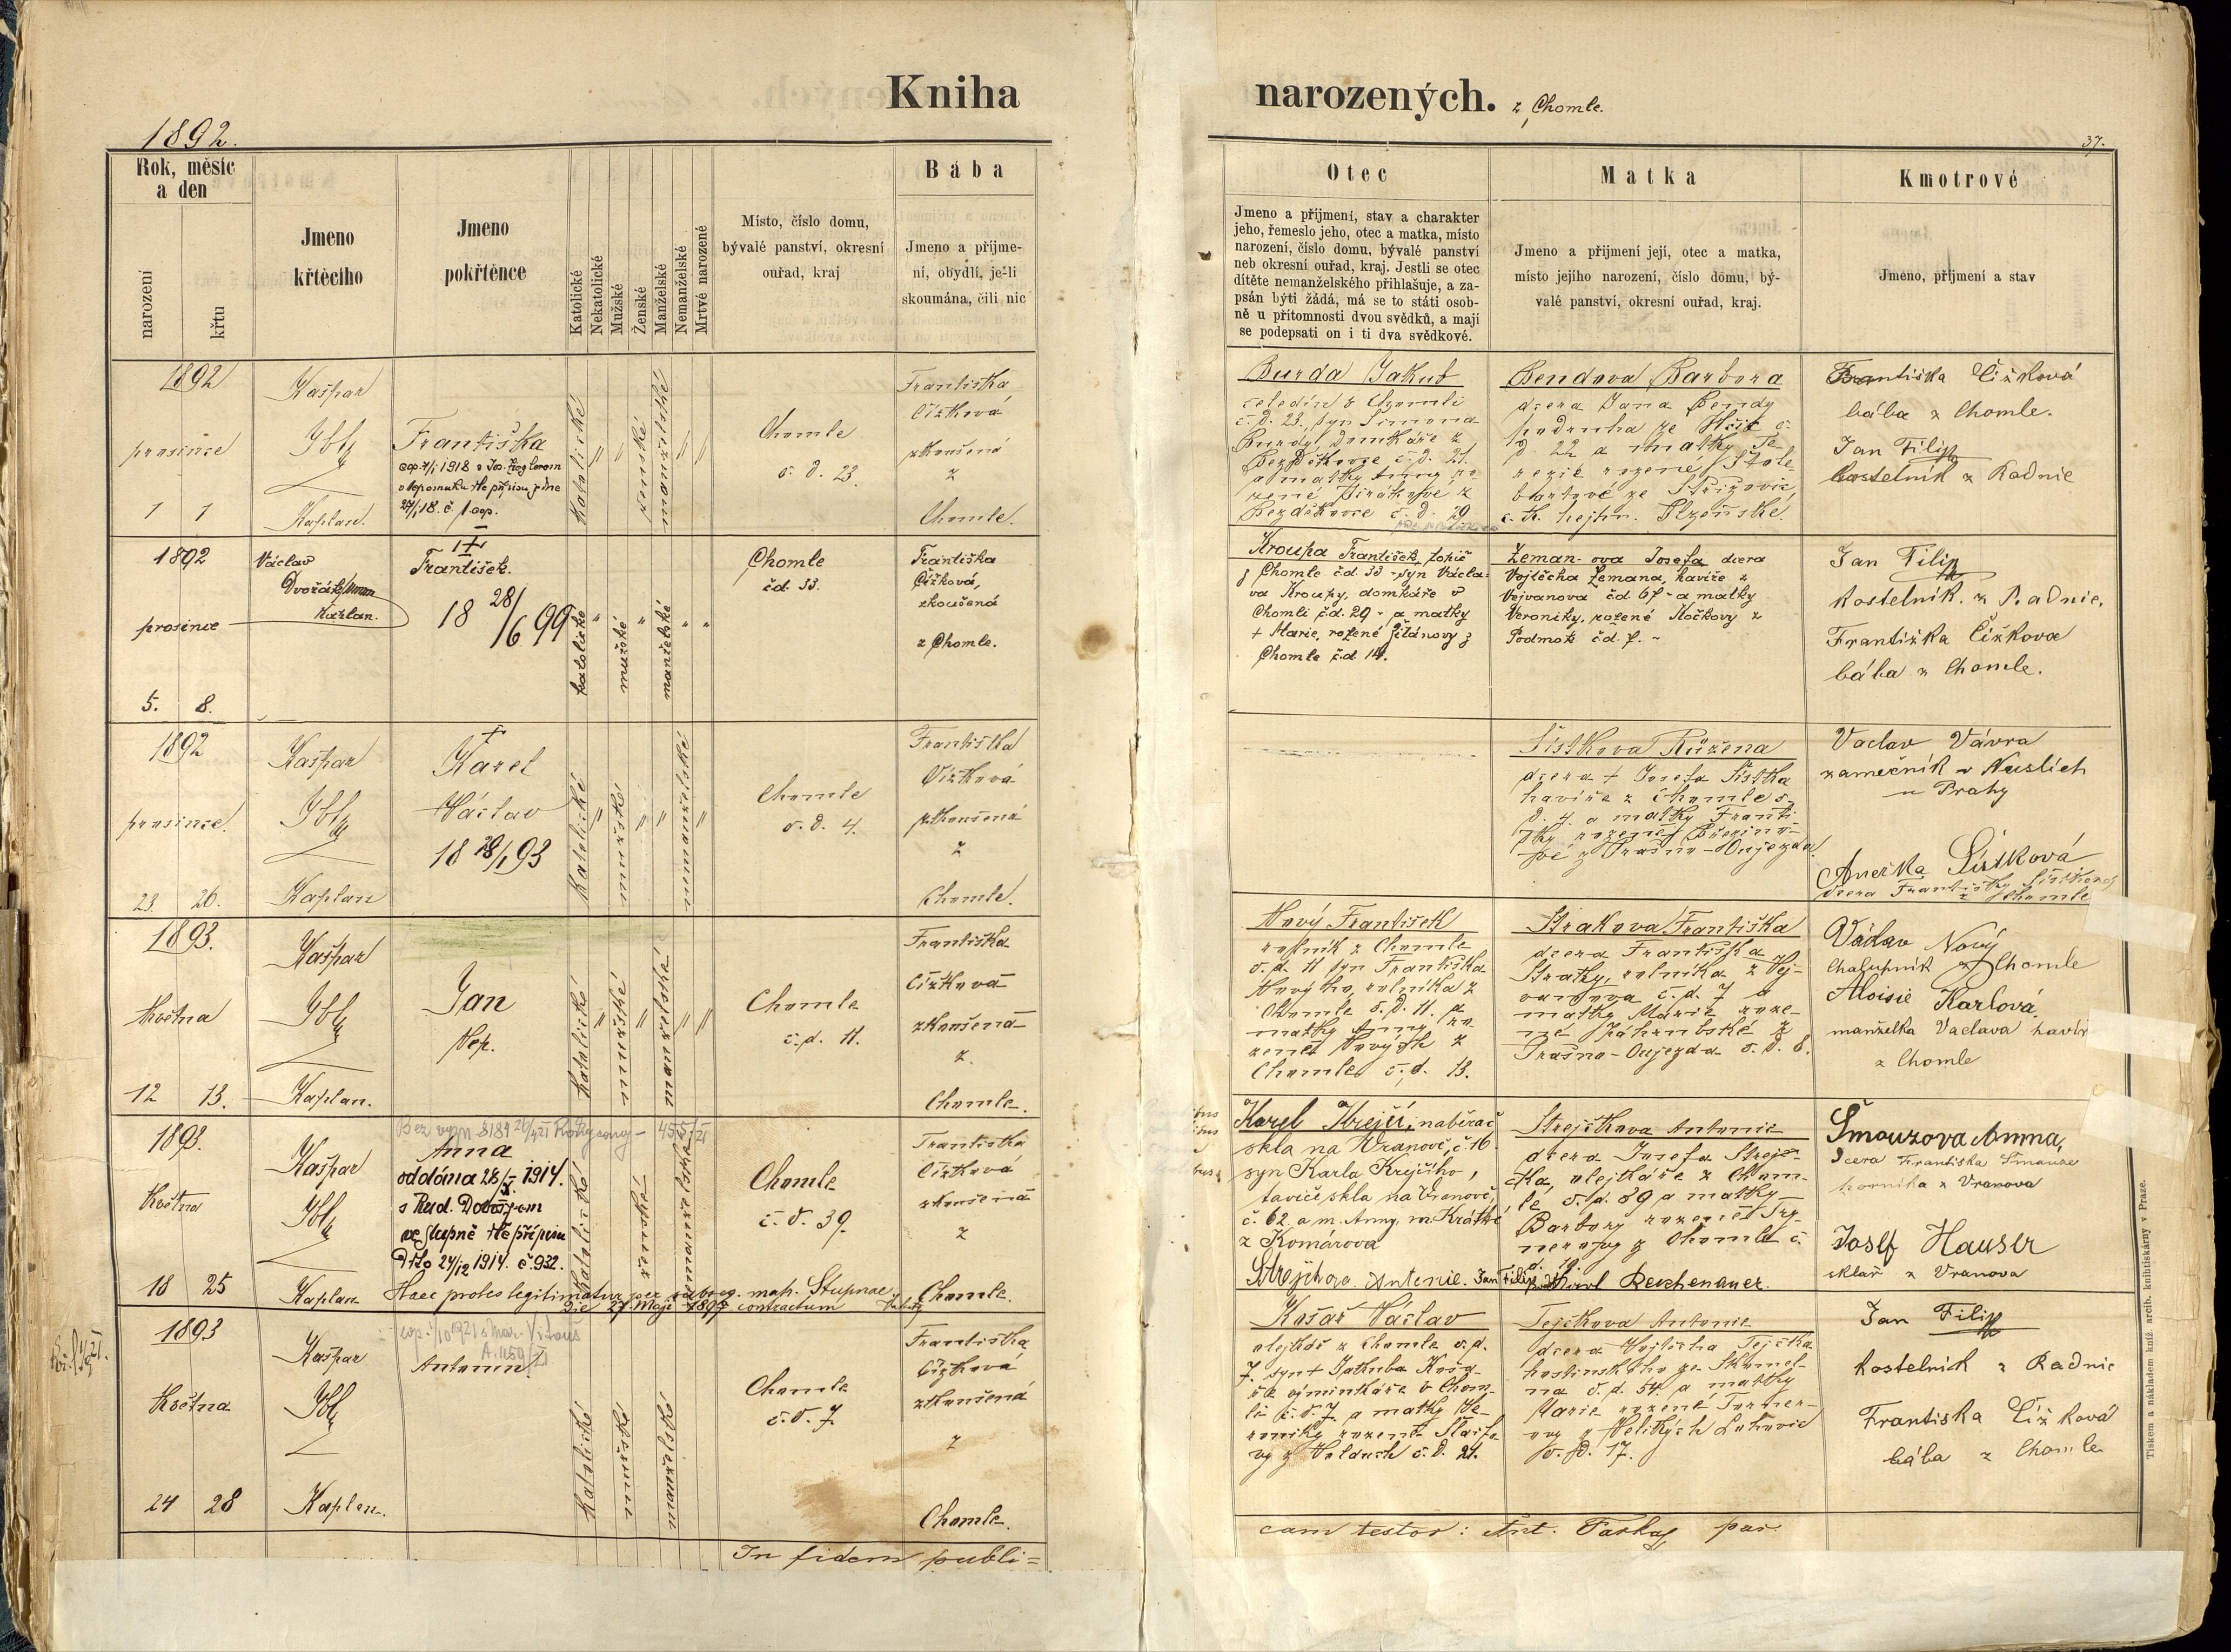 Kniha
narozených. z Chomle.
1892.
37.
Rok, měsíc
a den
narození
křtu
Jmeno
křtěcího
Jmeno
pokřtěnce
Katolické
Nekatolické
Mužské
Ženské
Manželské
Nemanželské
Mrtvé narozené
Místo, číslo domu,
bývalé panství, okresní
ouřad, kraj
Bába
Jmeno a příjme-
ní, obydlí, je-li
skoumána, čili nic
Otec
Jmeno a příjmení, stav a charakter
jeho, řemeslo jeho, otec a matka, místo
narození, číslo domu, bývalé panství
neb okresní ouřad, kraj. Jestli se otec
dítěte nemanželského přihlašuje, a za-
psán býti žádá, má se to státi osob-
ně u přítomnosti dvou svědků, a mají
se podepsati on i ti dva svědkové.
Matka
Jmeno a přijmení její, otec a matka,
místo jejího narození, číslo domu, bý-
valé panství, okresní ouřad, kraj.
Kmotrové
Jmeno, příjmení a stav
1892
prosince
1 1
Kašpar
Ibl
Kaplan.
Františka
cop. 7/1 1918 s Jos.
v Nepomuku dle přípisu z dne
27/1 18. č 1 cop.
katolické
"
"
ženské
manželské
"
"
Chomle
č. d. 23.
Františka
Čížková
zkoušená
z
Chomle.
Burda Jakub
čeledín z Chomle
č. d. 23, syn Šimona
Burdy, domkáře z
Bezděkovce č. d. 21.
a matky Anny ro-
zené z
Bezděkovce č. d. 29
Bendova Barbora
dcera Jana Bendy
podruha ze č.
d. 22 a matky Te-
rezie rozené
ze Střížovic,
c. k. hejtm. Plzeňské.
Františka Čížková
bába z Chomle.
Jan Filip
kostelník z Radnic
1892
prosince
5. 8.
Václav
Dvořák
Kaplan.
František.
18 28/6 99
katolické
"
mužské
"
manželské
"
"
Chomle
čd. 33.
Františka
Čížková,
zkoušená
z Chomle.
Kroupa František, topič
z Chomle čd. 33 - syn Václa-
va Kroupy, domkáře v
Chomli čd. 29 - a matky
+ Marie, rožené z
Chomle čd. 14.
Zeman-ova Josefa dcera
Vojtěcha Zemana, havíře z
Vejvanova čd. 67 - a matky
Veroniky, rozené Kočkovy z
Podmok čd. 7. -
Jan Filip
kostelník. z Radnic.
Františka Čížkova
bába z Chomle.
1892
prosince.
23. 26.
Kašpar
Ibl
Kaplan
Karel
Václav
18 28/1 93
katolické
"
mužské
"
"
nemanželské
"
Chomle
č. d. 4.
Františka
Čížková
zkoušená
z
Chomle.
Šístkova Růžena
dcera + Josefa Šístka
havíře z Chomle č.
d. 4. a matky Franti-
šky rozené Březino-
vé z Prašno-Oujezda.
Vaclav Vávra
zamečník v Nuslích
u Prahy
Anežka Šístková
dcera Františky Šístkové
z Chomle
1893.
Května
12 13.
Kašpar
Ibl
Kaplan.
Jan
Nep.
katolické
"
mužské
"
manželské
"
"
Chomle
č. d. 11.
Františka
Čížková
zkoušená
z
Chomle.
Nový František
rolník z Chomle
č. d. 11 syn Františka
Nového, rolníka z
Chomle č. d. 11. a
matky Anny ro-
zené Novýoh z
Chomle č. d. 13.
Strakova Františka
dcera Františka
Straky, rolníka z Vej-
vanova č. d. 7 a
matky Marie roze-
né Záhrobské z
Prašno-Oujezda č. d. 8.
Václav Nový
chalupník z Chomle
Aloisie Karlová,
manželka Vaclava havíř
z Chomle
1893.
Května
18 25
Kašpar
Ibl
Kaplan
Anna
oddána 28/X. 1914.
s Rud.
ve Stupně dle přípisu
Dtto 24/12 1914. č. 932.
Haec proles legitimatur per subseq. matr. Stupnae
die 27. Maji 1897 contractum
katolické
ženské
nemanželské
Chomle
č. d. 39.
Františka
Čížková
zkoušená
z
Chomle.
Karel Krejčí, naběrač
skla na Vranově, č 16
syn Karla Krejčího,
taviče skla na Vranově,
č. 62 a m. Anny, m. Krátké
z Komárova
Strejčkova Antonie
dcera Josefa Strejč-
ka, olejkáře z Chom-
le, č. d. 39 a matky
Barbory rozené
z Chomle č.
d. 19.
Strejčkova Antonie. Jan Filip Karl Reichenauer.
Šmouzova Anna,
dcera Františka Šmauze
horníka z Vranova
Josef Hauser
sklář z Vranova
1893
Května
24 28
Kašpar
Ibl
Kaplan.
Antonín
katolické
mužské
manželské
Chomle
č. d. 7
Františka
Čížková
zkoušená
z
Chomle.
Košař Václav
olejkář z Chomle č. d.
7. syn + Jakuba Koša-
ře výminkáře v Chom-
li č. d. 7 a matky Ve-
roniky rozené
vy z Volduch č. d. 21.
Tejčkova Antonie
dcera Vojtěcha Tejčka
hostinského ze Skomel-
na č. d. 54 a matky
Marie rozené
z Velikých
č. d. 17.
Jan Filip
kostelník z Radnic
Františka Čížková
bába z Chomle
In fidem publi=
cam testor: Ant. par.
Tiskem a nákladem kníž. arcib. knihtiskárny v Praze.